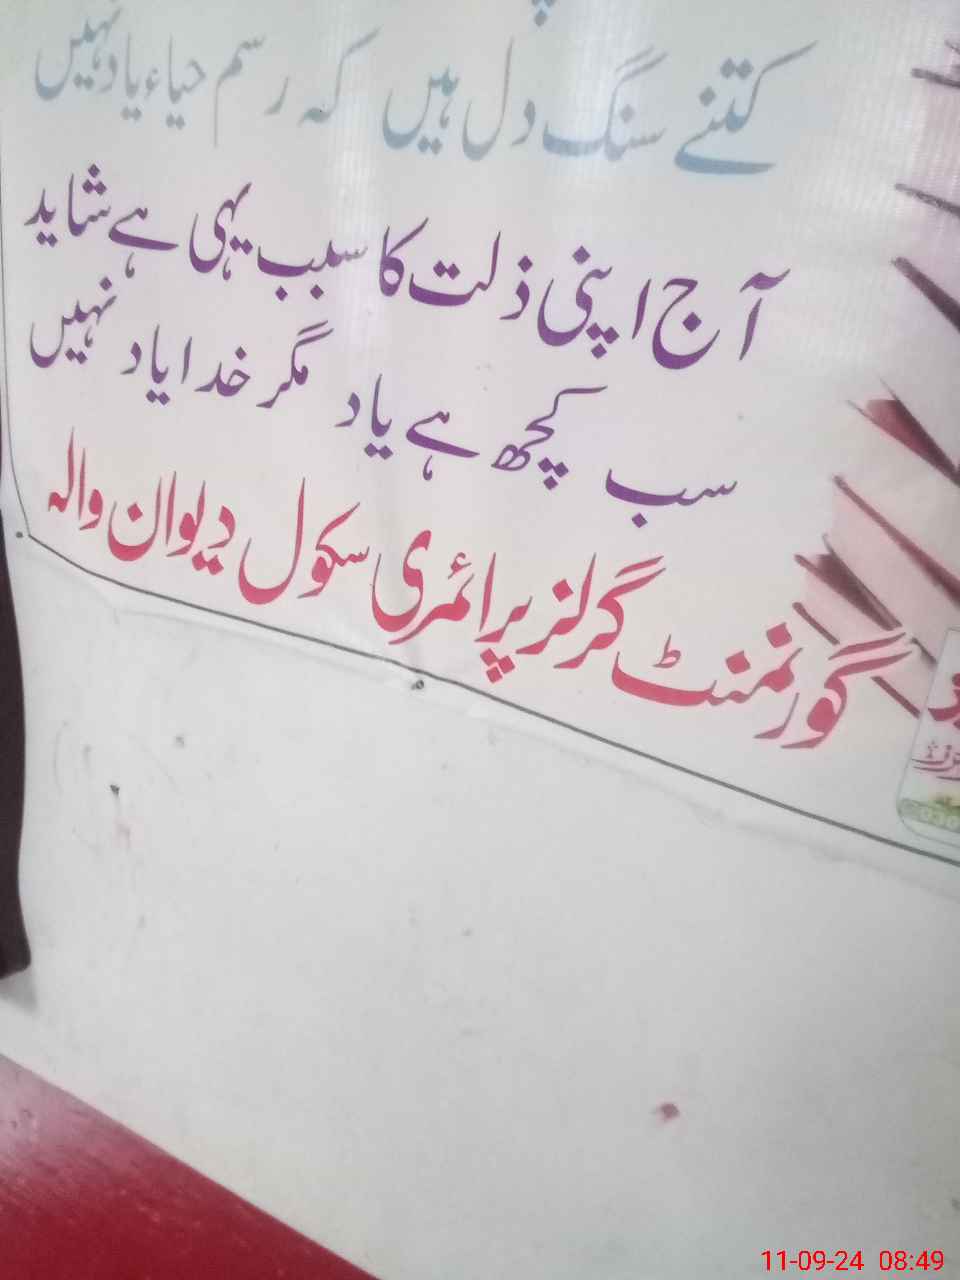 کتنے سنگ دل ہیں کہ رسم حیاء یاد نہیں
آج اپنی ذلت کا سبب یہی ہے شاید
سب کچھ ہے یاد مگر خدا یاد نہیں
گورنمنٹ گرلز پرائمری سکول دیوان والہ
11-09-24 08:49